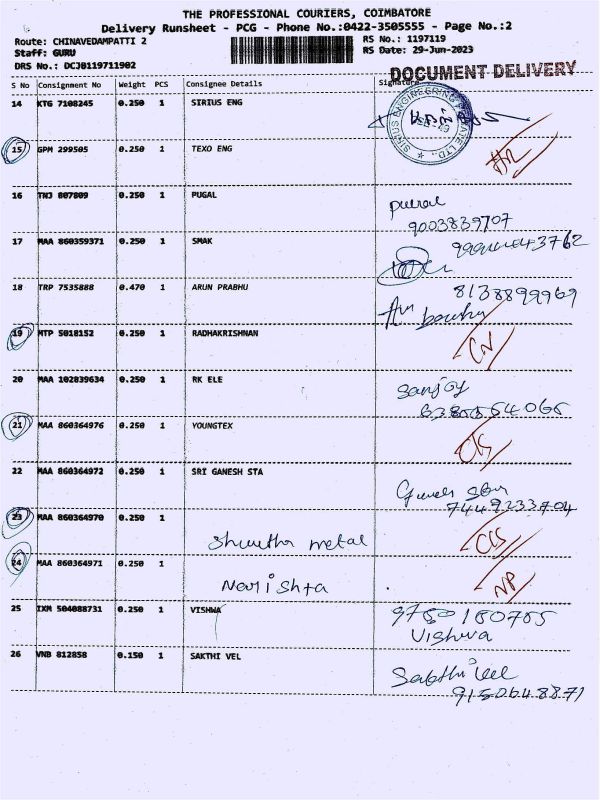 THE PROFESSIONAL COURIERS, COIMBATORE
Delivery Runsheet - PCG - Phone No.:0422-3505555 - Page No.:2
Route: CHINAVEDAMPATTI 2
RS No.: 1197119
Staff: GURU
RS Date: 29-Jun-2023
DRS No.: DCJ0119711902
DOCUMENT DELIVERY
S No Consignment No Weight PCS Consignee Details Signature
14 KTG 7108245 0.250 1 SIRIUS ENG
SIRIUS ENGINEERING PRIVATE LTD.,
15 GPM 299505 0.250 1 TEXO ENG
16 TNJ 807809 0.250 1 PUGAL
9003839707
17 MAA 860359371 0.250 1 SMAK
18 TRP 7535888 0.470 1 ARUN PRABHU 8138899969
19 MTP 5018152 0.250 1 RADHAKRISHNAN
CN
20 MAA 102839634 0.250 1 RK ELE Sanjoy
21 MAA 860364976 0.250 1 YOUNGTEX
CLS
22 MAA 860364972 0.250 1 SRI GANESH STA
7449233704
23 MAA 860364970 0.250 1
metal CLS
24 MAA 860364971 0.250 1
Narishta NP
25 IXM 504088731 0.250 1 VISHWA
Vishwa
26 VNB 812858 0.150 1 SAKTHI VEL
Sakthi vel
9150648871